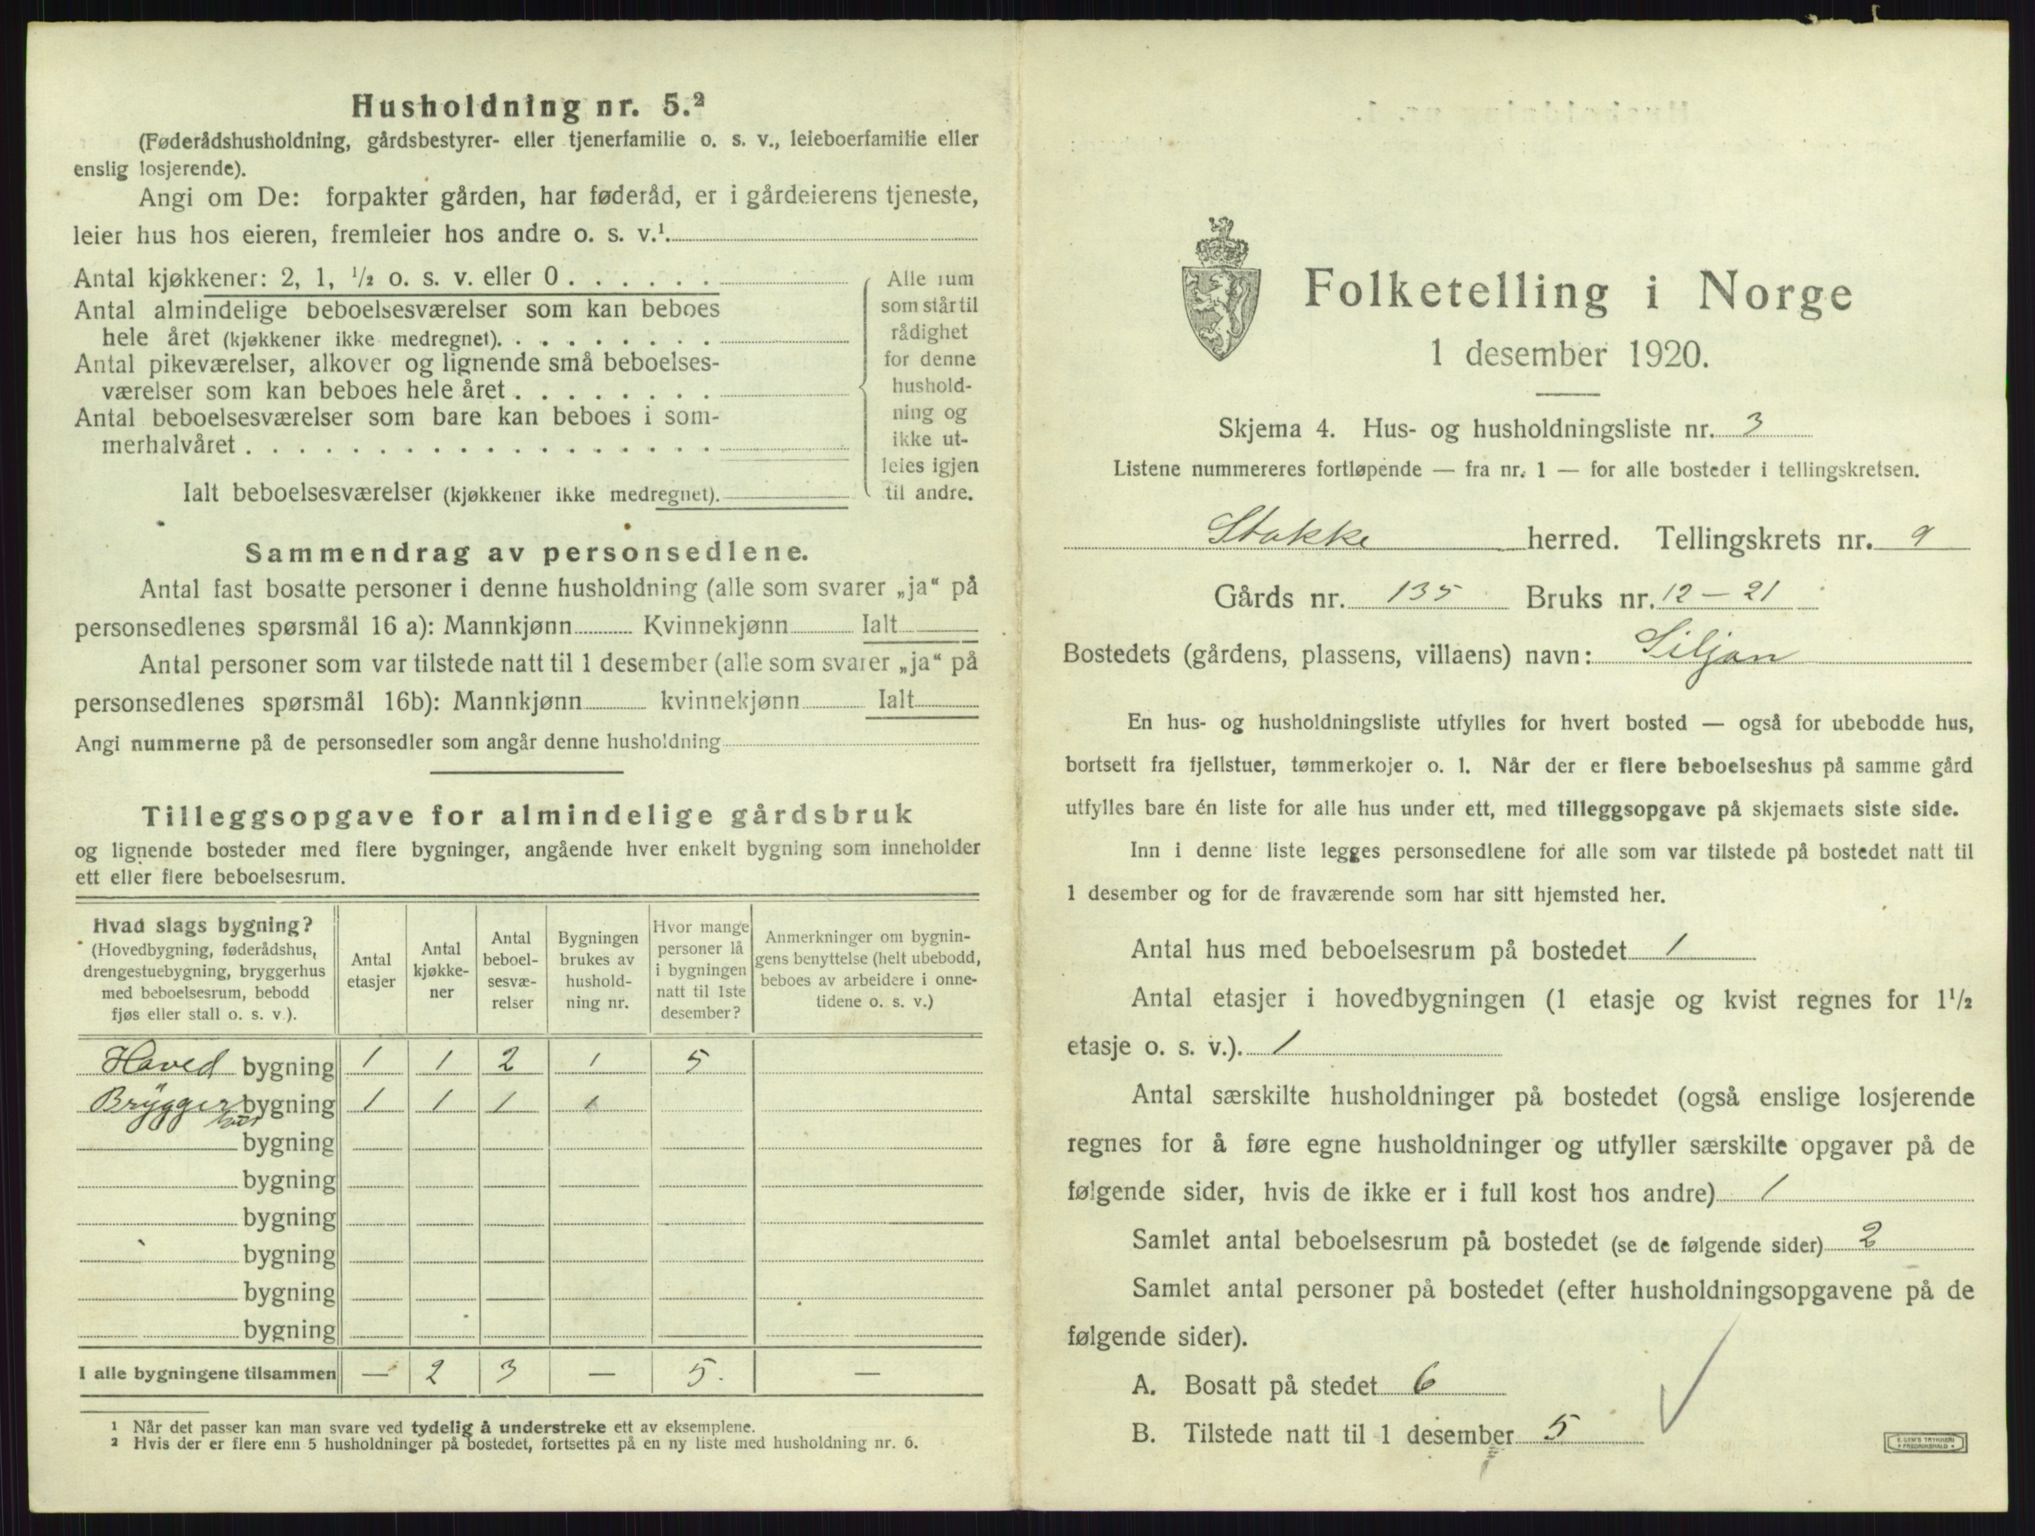 Husholdning nr. 5.²
(Føderådshusholdning, gårdsbestyrer- eller tjenerfamilie o. s. v., leieboerfamilie eller
enslig losjerende).
Angi om De: forpakter gården, har føderåd, er i gårdeierens tjeneste,
leier hus hos eieren, fremleier hos andre o. s. v.¹.
Antal kjøkkener: 2, 1, ½ o. s. v. eller 0 . . . . . .
Antal almindelige beboelsesværelser som kan beboes
hele året (kjøkkener ikke medregnet). . . . . . . . .
Antal pikeværelser, alkover og lignende små beboelses-
værelser som kan beboes hele året . . . . . . . .
Antal beboelsesværelser som bare kan beboes i som-
merhalvåret . . . . . . . . . . . . . . . . . .
Ialt beboelsesværelser (kjøkkener ikke medregnet).
Alle rum
som står til
rådighet
for denne
hushold-
ning og
ikke ut-
leies igjen
til andre.
Sammendrag av personsedlene.
Antal fast bosatte personer i denne husholdning (alle som svarer „ja“ på
personsedlenes spørsmål 16 a): Mannkjønn Kvinnekjønn Ialt
Antal personer som var tilstede natt til 1 desember (alle som svarer „ja“ på
personsedlenes spørsmål 16b): Mannkjønn kvinnekjønn Ialt
Angi nummerne på de personsedler som angår denne husholdning
Tilleggsopgave for almindelige gårdsbruk
og lignende bosteder med flere bygninger, angående hver enkelt bygning som inneholder
ett eller flere beboelsesrum.
Hvad slags bygning?
(Hovedbygning, føderådshus,
drengestuebygning, bryggerhus
med beboelsesrum, bebodd
fjøs eller stall o. s. v ).
Antal
etasjer
Antal
kjøkke-
ner
Antal
beboel-
sesvæ-
relser
Bygningen
brukes av
hushold-
ning nr.
Hvor mange
personer lå
i bygningen
natt til 1ste
desember?
Anmerkninger om bygnin-
gens benyttelse (helt ubebodd,
beboes av arbeidere i onne-
tidene o. s. v.)
Hoved bygning 1 1 2 1 5
Brygger bygning 1 1 1 1
hus
bygning
bygning
bygning
bygning
bygning
bygning
I alle bygningene tilsammen — 2 3 — 5. —
¹ Når det passer kan man svare ved tydelig å understreke ett av eksemplene.
² Hvis der er flere enn 5 husholdninger på bostedet, fortsettes på en ny liste med husholdning nr. 6.
Folketelling i Norge
1 desember 1920.
Skjema 4. Hus- og husholdningsliste nr. 3
Listene nummereres fortløpende — fra nr. 1 — for alle bosteder i tellingskretsen.
Stokke herred. Tellingskrets nr. 9
Gårds nr. 135 Bruks nr. 12 — 21
Bostedets (gårdens, plassens, villaens) navn: Siljan
En hus- og husholdningsliste utfylles for hvert bosted — også for ubebodde hus,
bortsett fra fjellstuer, tømmerkojer o. l. Når der er flere beboelseshus på samme gård
utfylles bare én liste for alle hus under ett, med tilleggsopgave på skjemaets siste side.
Inn i denne liste legges personsedlene for alle som var tilstede på bostedet natt til
1 desember og for de fraværende som har sitt hjemsted her.
Antal hus med beboelsesrum på bostedet 1
Antal etasjer i hovedbygningen (1 etasje og kvist regnes for 1½
etasje o. s. v.). 1
Antal særskilte husholdninger på bostedet (også enslige losjerende
regnes for å føre egne husholdninger og utfyller særskilte opgaver på de
følgende sider, hvis de ikke er i full kost hos andre) 1
Samlet antal beboelsesrum på bostedet (se de følgende sider) 2
Samlet antal personer på bostedet (efter husholdningsopgavene på de
følgende sider).
A. Bosatt på stedet 6
B. Tilstede natt til 1 desember 5
E. SEM'S TRYKKERI
FREDRIKSHALD